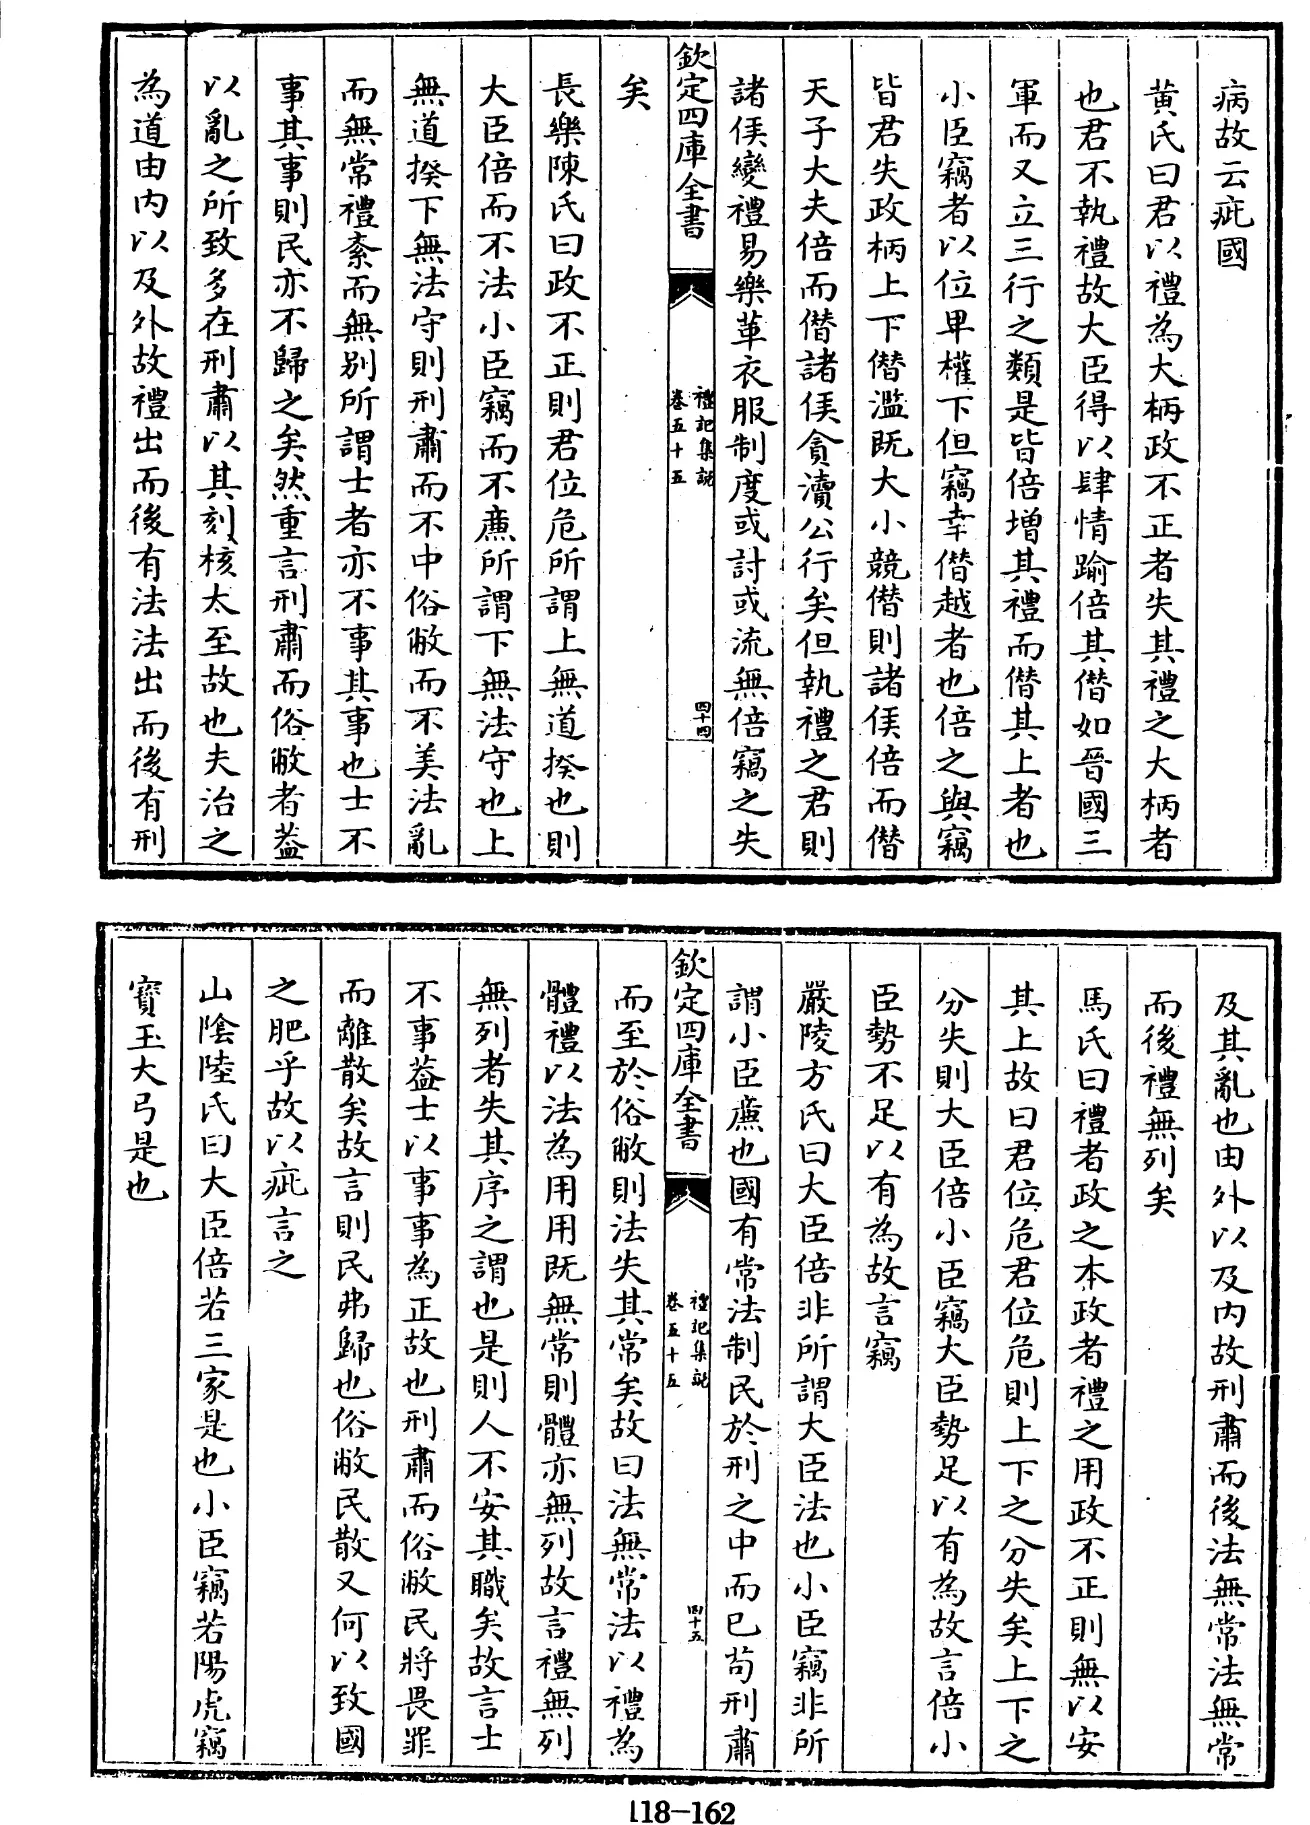 病故云疵國
黄氏曰君以禮為大柄政不正者失其禮之大柄者
也君不執禮故大臣得以肆情踰倍其僣如晉國三
軍而又立三行之類是皆倍增其禮而僣其上者也
小臣竊者以位卑權下但竊幸僣越者也倍之與竊
皆君失政柄上下僣濫既大小競僣則諸侯倍而僣
天子大夫倍而僣諸侯貪瀆公行矣但執禮之君則
諸侯變禮易樂革衣服制度或討或流無倍竊之失
欽定四庫全書
禮記集説
卷五十五
四十四
矣
長樂陳氏曰政不正則君位危所謂上無道揆也則
大臣倍而不法小臣竊而不亷所謂下無法守也上
無道揆下無法守則刑肅而不中俗敝而不美法亂
而無常禮紊而無别所謂士者亦不事其事也士不
事其事則民亦不歸之矣然重言刑肅而俗敝者葢
以亂之所致多在刑肅以其刻核太至故也夫治之
為道由内以及外故禮出而後有法法出而後有刑
及其亂也由外以及内故刑肅而後法無常法無常
而後禮無列矣
馬氏曰禮者政之本政者禮之用政不正則無以安
其上故曰君位危君位危則上下之分失矣上下之
分失則大臣倍小臣竊大臣勢足以有為故言倍小
臣勢不足以有為故言竊
嚴陵方氏曰大臣倍非所謂大臣法也小臣竊非所
謂小臣亷也國有常法制民於刑之中而已苟刑肅
欽定四庫全書
禮記集説
卷五十五
四十五
而至於俗敝則法失其常矣故曰法無常法以禮為
體禮以法為用用既無常則體亦無列故言禮無列
無列者失其序之謂也是則人不安其職矣故言士
不事葢士以事事為正故也刑肅而俗敝民將畏罪
而離散矣故言則民弗歸也俗敝民散又何以致國
之肥乎故以疵言之
山隂陸氏曰大臣倍若三家是也小臣竊若陽虎竊
寳玉大弓是也
118-162